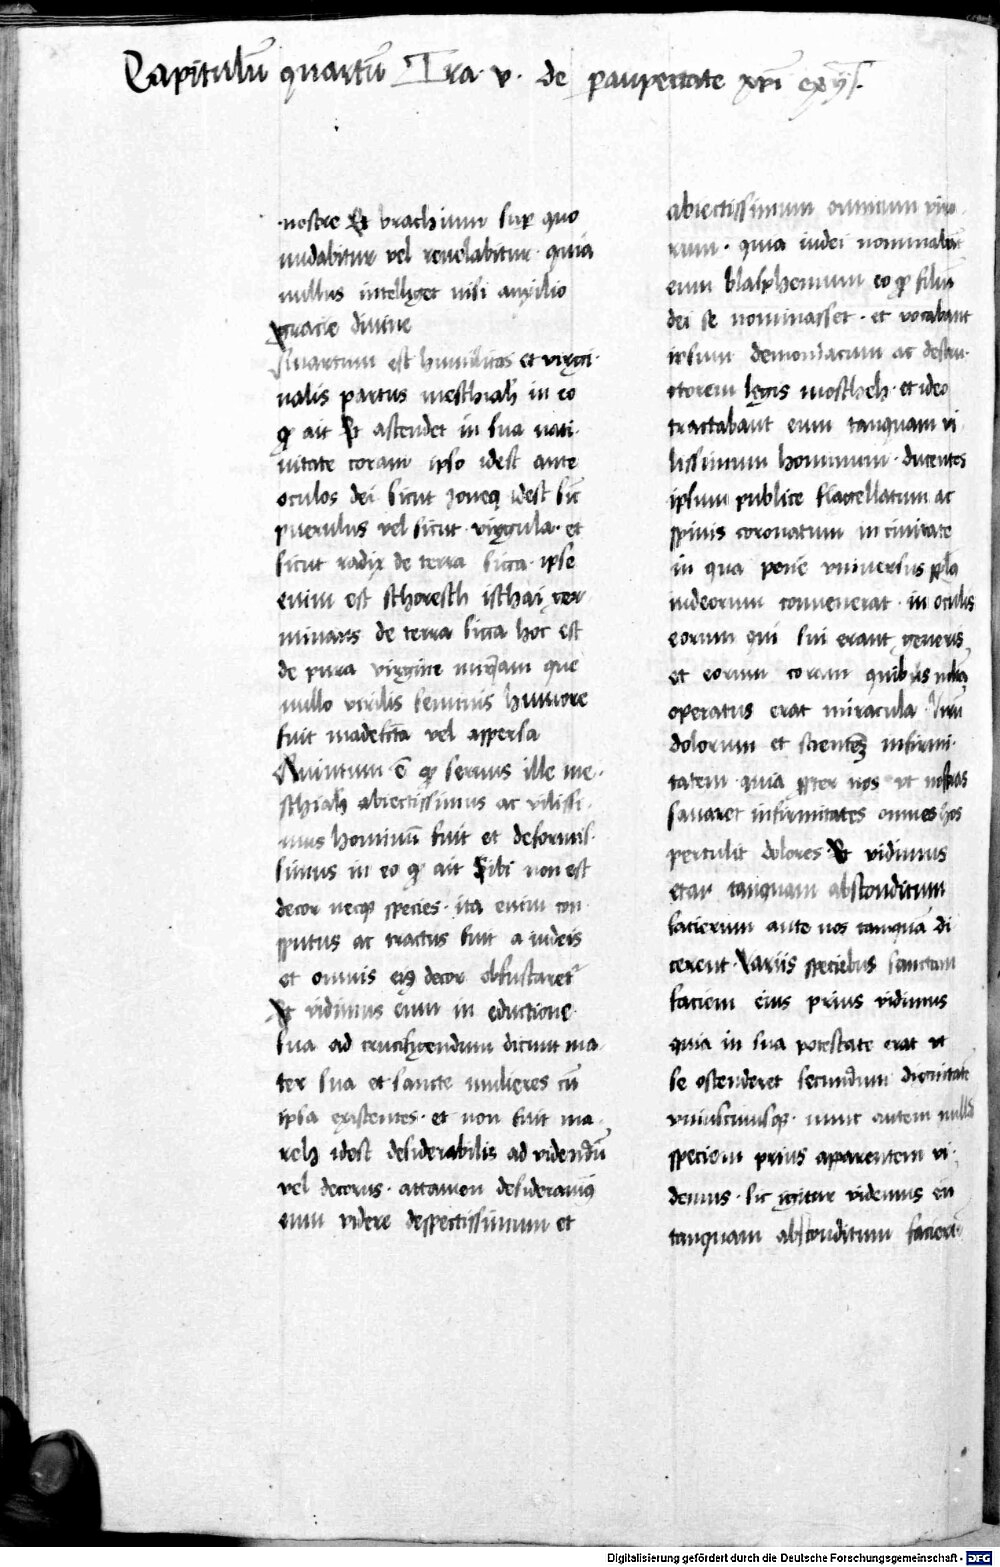 Capitulū quartū Tra. v. de paupertate xpi
nostre Et brachium sup quo
nudabitur vel revelabitur quia
nullus intelliget nisi auxilio
gracie divine
Quartum est humilitas et virgi
nalis partus mesthiah in eo
ꝙ ait Et astendet in sua nati
vitate coram ipso idest ante
oculos dei sicut joneq idest sic̄
puerulus vel sicut virgula et
sicut radix de terra sicca ipse
enim est sthoresth isthai ger
minans de terra sicca hoc est
de pura virgine nunq̄am que
nullo virilis seminis humore
fuit madefc̄ta vel aspersa
Quintum ē ꝙ servus ille me
sthiah abiectissimus ac vilissi
mus hominū fuit et deformis
simus in eo ꝙ ait Sibi non est
decor neqꝫ species ita enim con
sputus ac tractus fuit a iudeis
et omnis eiꝰ decor obfuscaret᷑
Et vidimus eum in eductione
sua ad crucifigendum dicunt ma
ter sua et sancte mulieres cū
ipsa existentes et non fuit ma
reh idest desiderabilis ad videndū
vel decorus attamen desideraviꝰ
eum videre despectissimum et
abiectissimum omnium viro
rum quia iudei nominabāt
eum blasphemum eo ꝙ filiū
dei se nominasset et vocabant
ipsum demoniacum ac destru
ctorem legis mostheh et ideo
tractabant eum tanquam vi
lissimum hominum ducentes
ipsum publice flagellatum ac
spinis coronatum in civitate
in qua pene universus ppl̄s
iudeorum convenerat in oculis
eorum qui sui erant generis
et eorum coram quibus multa
operatus erat miracula Virū
dolorum et scientē infirmi
tatem quia ꝓpter nos ut nostras
sanaret infirmitates omnes hos
pertulit dolores Et vidimus
etax tanquam absconditum
facierum ante nos tanquā di
cerent Variis speciebus sanctam
faciem eius prius vidimus
quia in sua potestate erat ut
se ostenderet secundum dignitatē
uniuscuiusqꝫ nunc autem nullā
speciem prius aparentem vi
demus sic igitur videmus eū
tanquam absconditum facierū
Digitalisierung gefördert durch die Deutsche Forschungsgemeinschaft - DFG